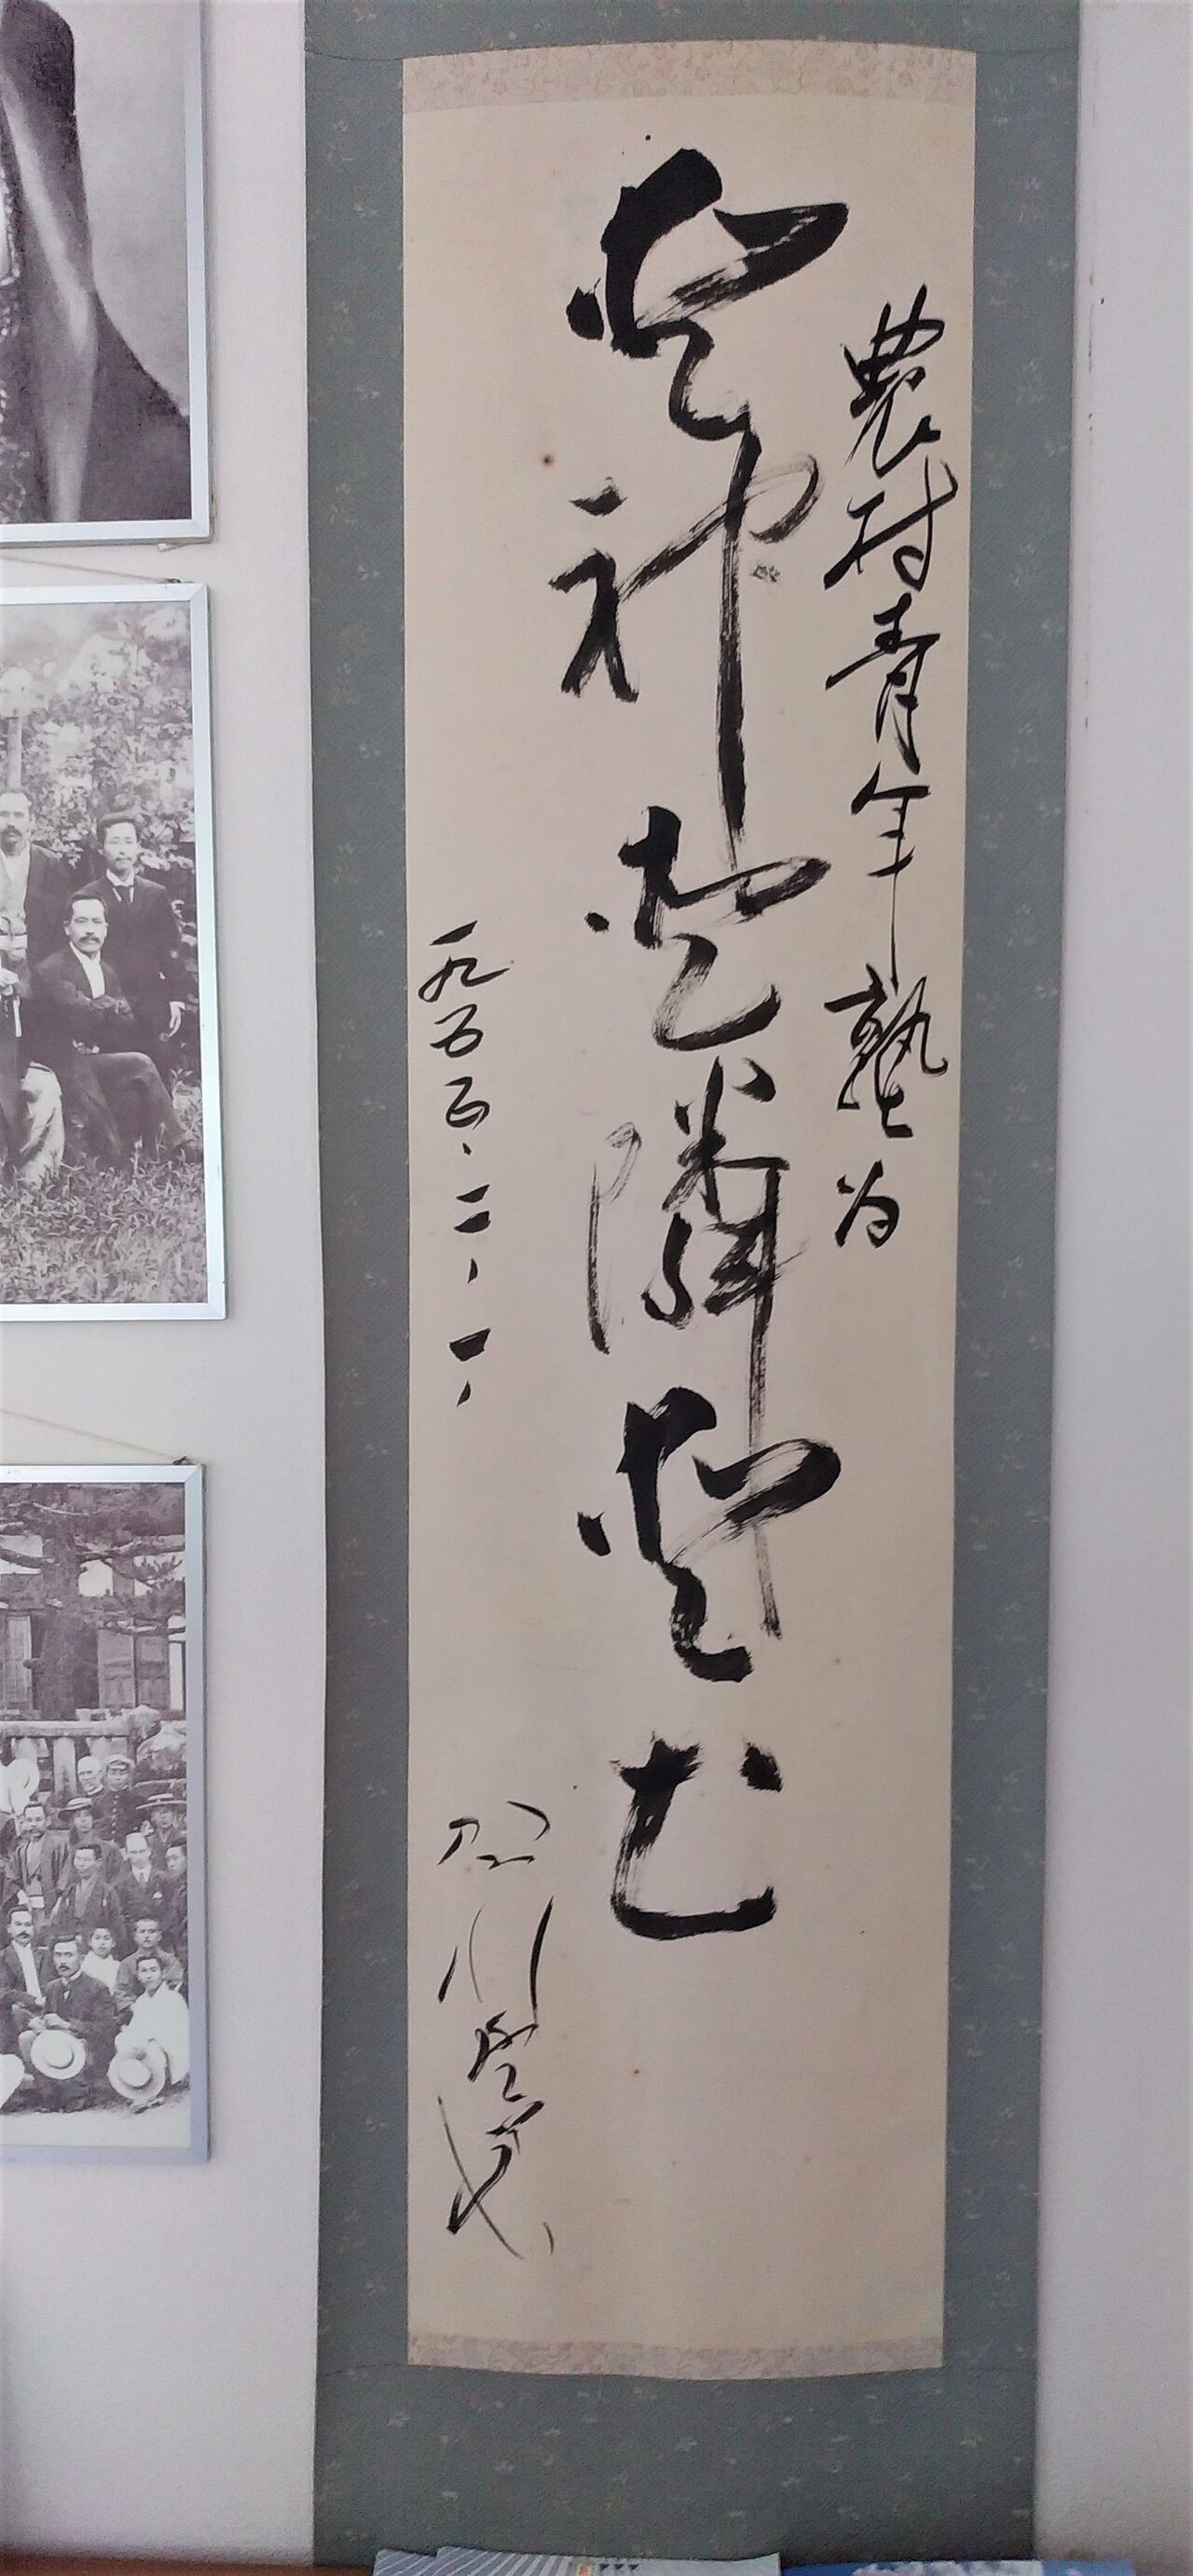 農村青年塾為
愛神愛隣愛土
一九五五、二、一、
賀川豊彦